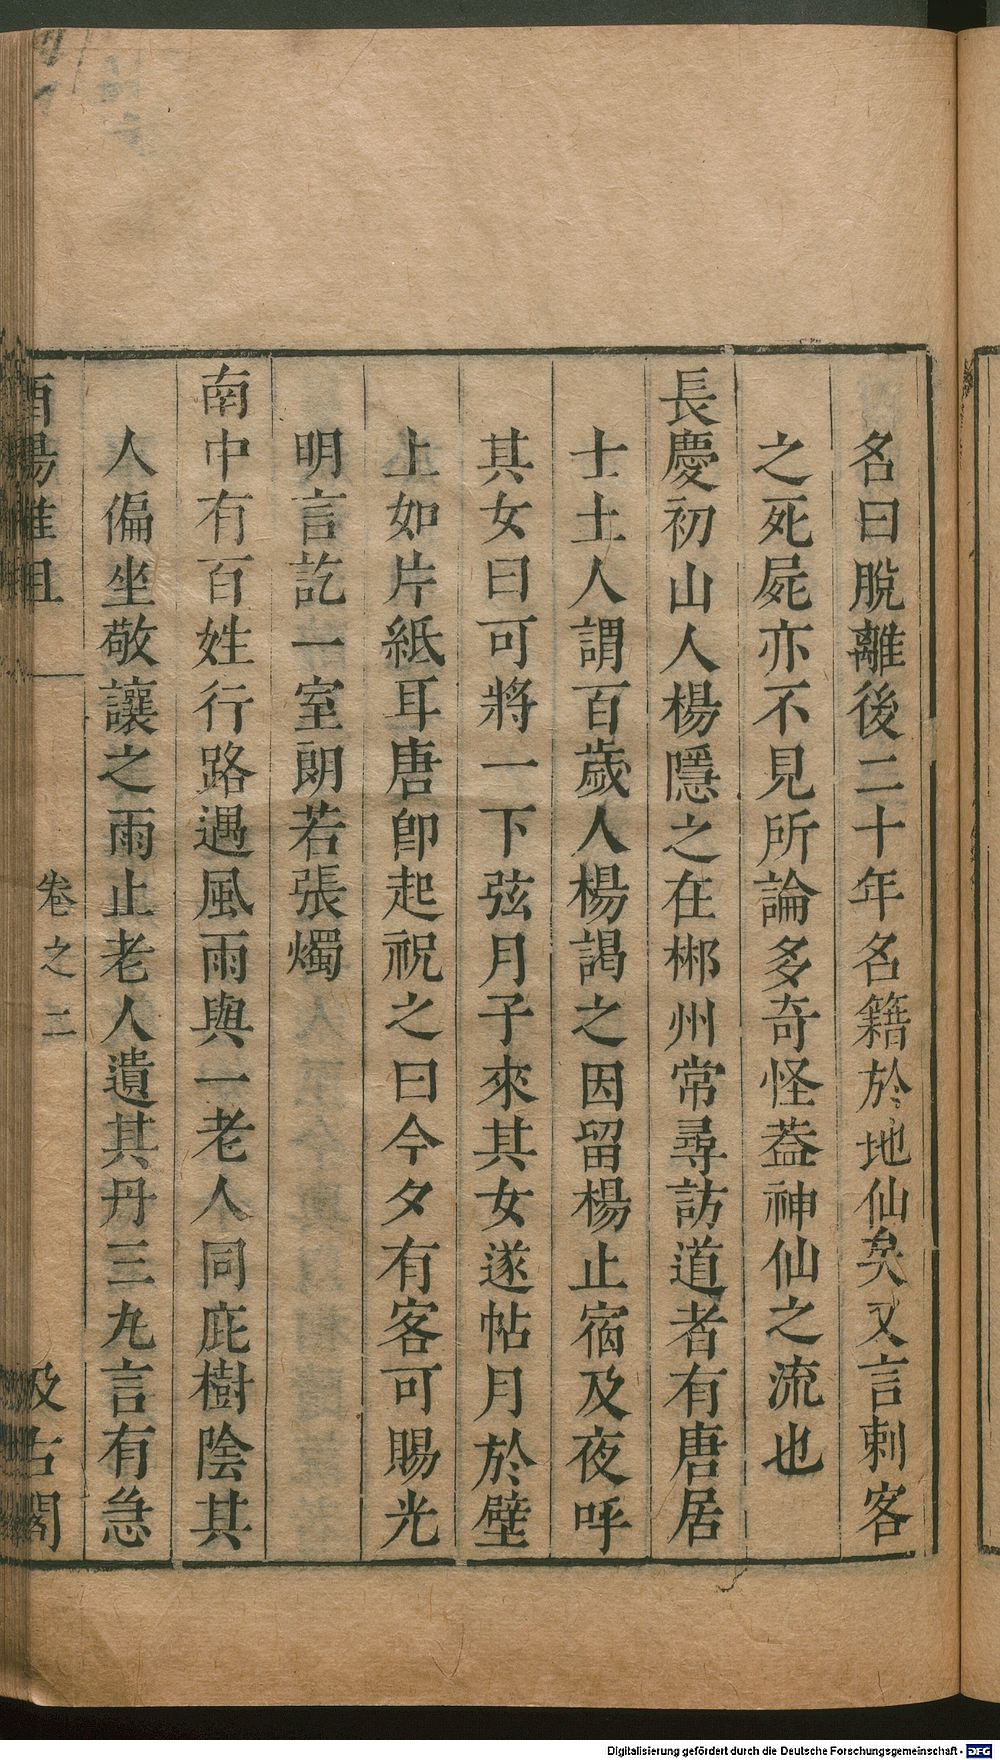 名曰脫離後二十年名籍於地仙矣又言刺客
之死屍亦不見所論多奇怪葢神仙之流也
長慶初山人楊隱之在郴州常尋訪道者有唐居
士土人謂百歲人楊謁之因留楊止宿及夜呼
其女曰可將一下弦月子來其女遂帖月於壁
上如片紙耳唐卽起祝之曰今夕有客可賜光
明言訖一室朗若張燭
南中有百姓行路遇風雨與一老人同庇樹陰其
人偏坐敬讓之雨止老人遺其丹三丸言有急
酉陽雜俎
卷之二
汲古閣
Digitalisierung gefördert durch die Deutsche Forschungsgemeinschaft - DFG